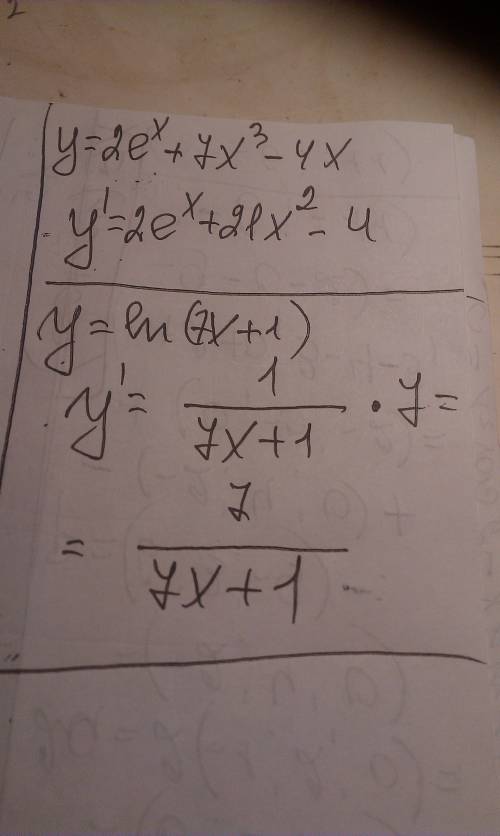 2
y=2eˣ+7x³-4x
y'=2eˣ+21x²-4
y=ln(7x+1)
y'= 1/(7x+1) · 7=
= 7/(7x+1)